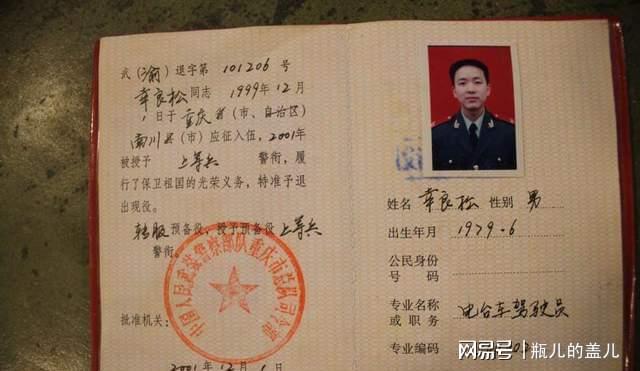 武（渝）退字第 101206 号
幸良松同志 1999年12月
1日于重庆省（市、自治区）
南川县（市）应征入伍，2001年
被授予 上等兵 警衔，履
行了保卫祖国的光荣义务，特准予退
出现役。
转服预备役，授予预备役上等兵
警衔。
中国人民武装警察部队重庆市总队司令部
批准机关：
2001年12月1日
姓名 幸良松 性别 男
出生年月 1979.6
公民身份
号码
专业名称 电台车驾驶员
或职务
专业编码
网易号 | 瓶儿的盖儿